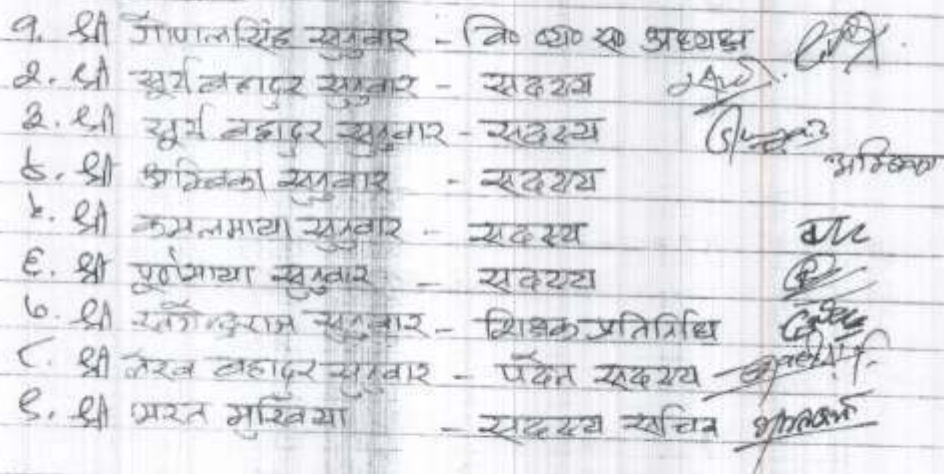 १. श्री गोपालसिंह सुनुवार - वि० व्य० स० अध्यक्ष
२. श्री सूर्य बहादुर सुनुवार - सदस्य
३. श्री सूर्य बहादुर सुनुवार - सदस्य
४. श्री अम्बिका सुनुवार - सदस्य अम्बिका
५. श्री कमलमाया सुनुवार - सदस्य
६. श्री पूर्णमाया सुनुवार - सदस्य
७. श्री खगेन्द्रराज सुनुवार - शिक्षक प्रतिनिधि
८. श्री तेख बहादुर सुनुवार - पदेन सदस्य
९. श्री भरत मुखिया - सदस्य सचिव